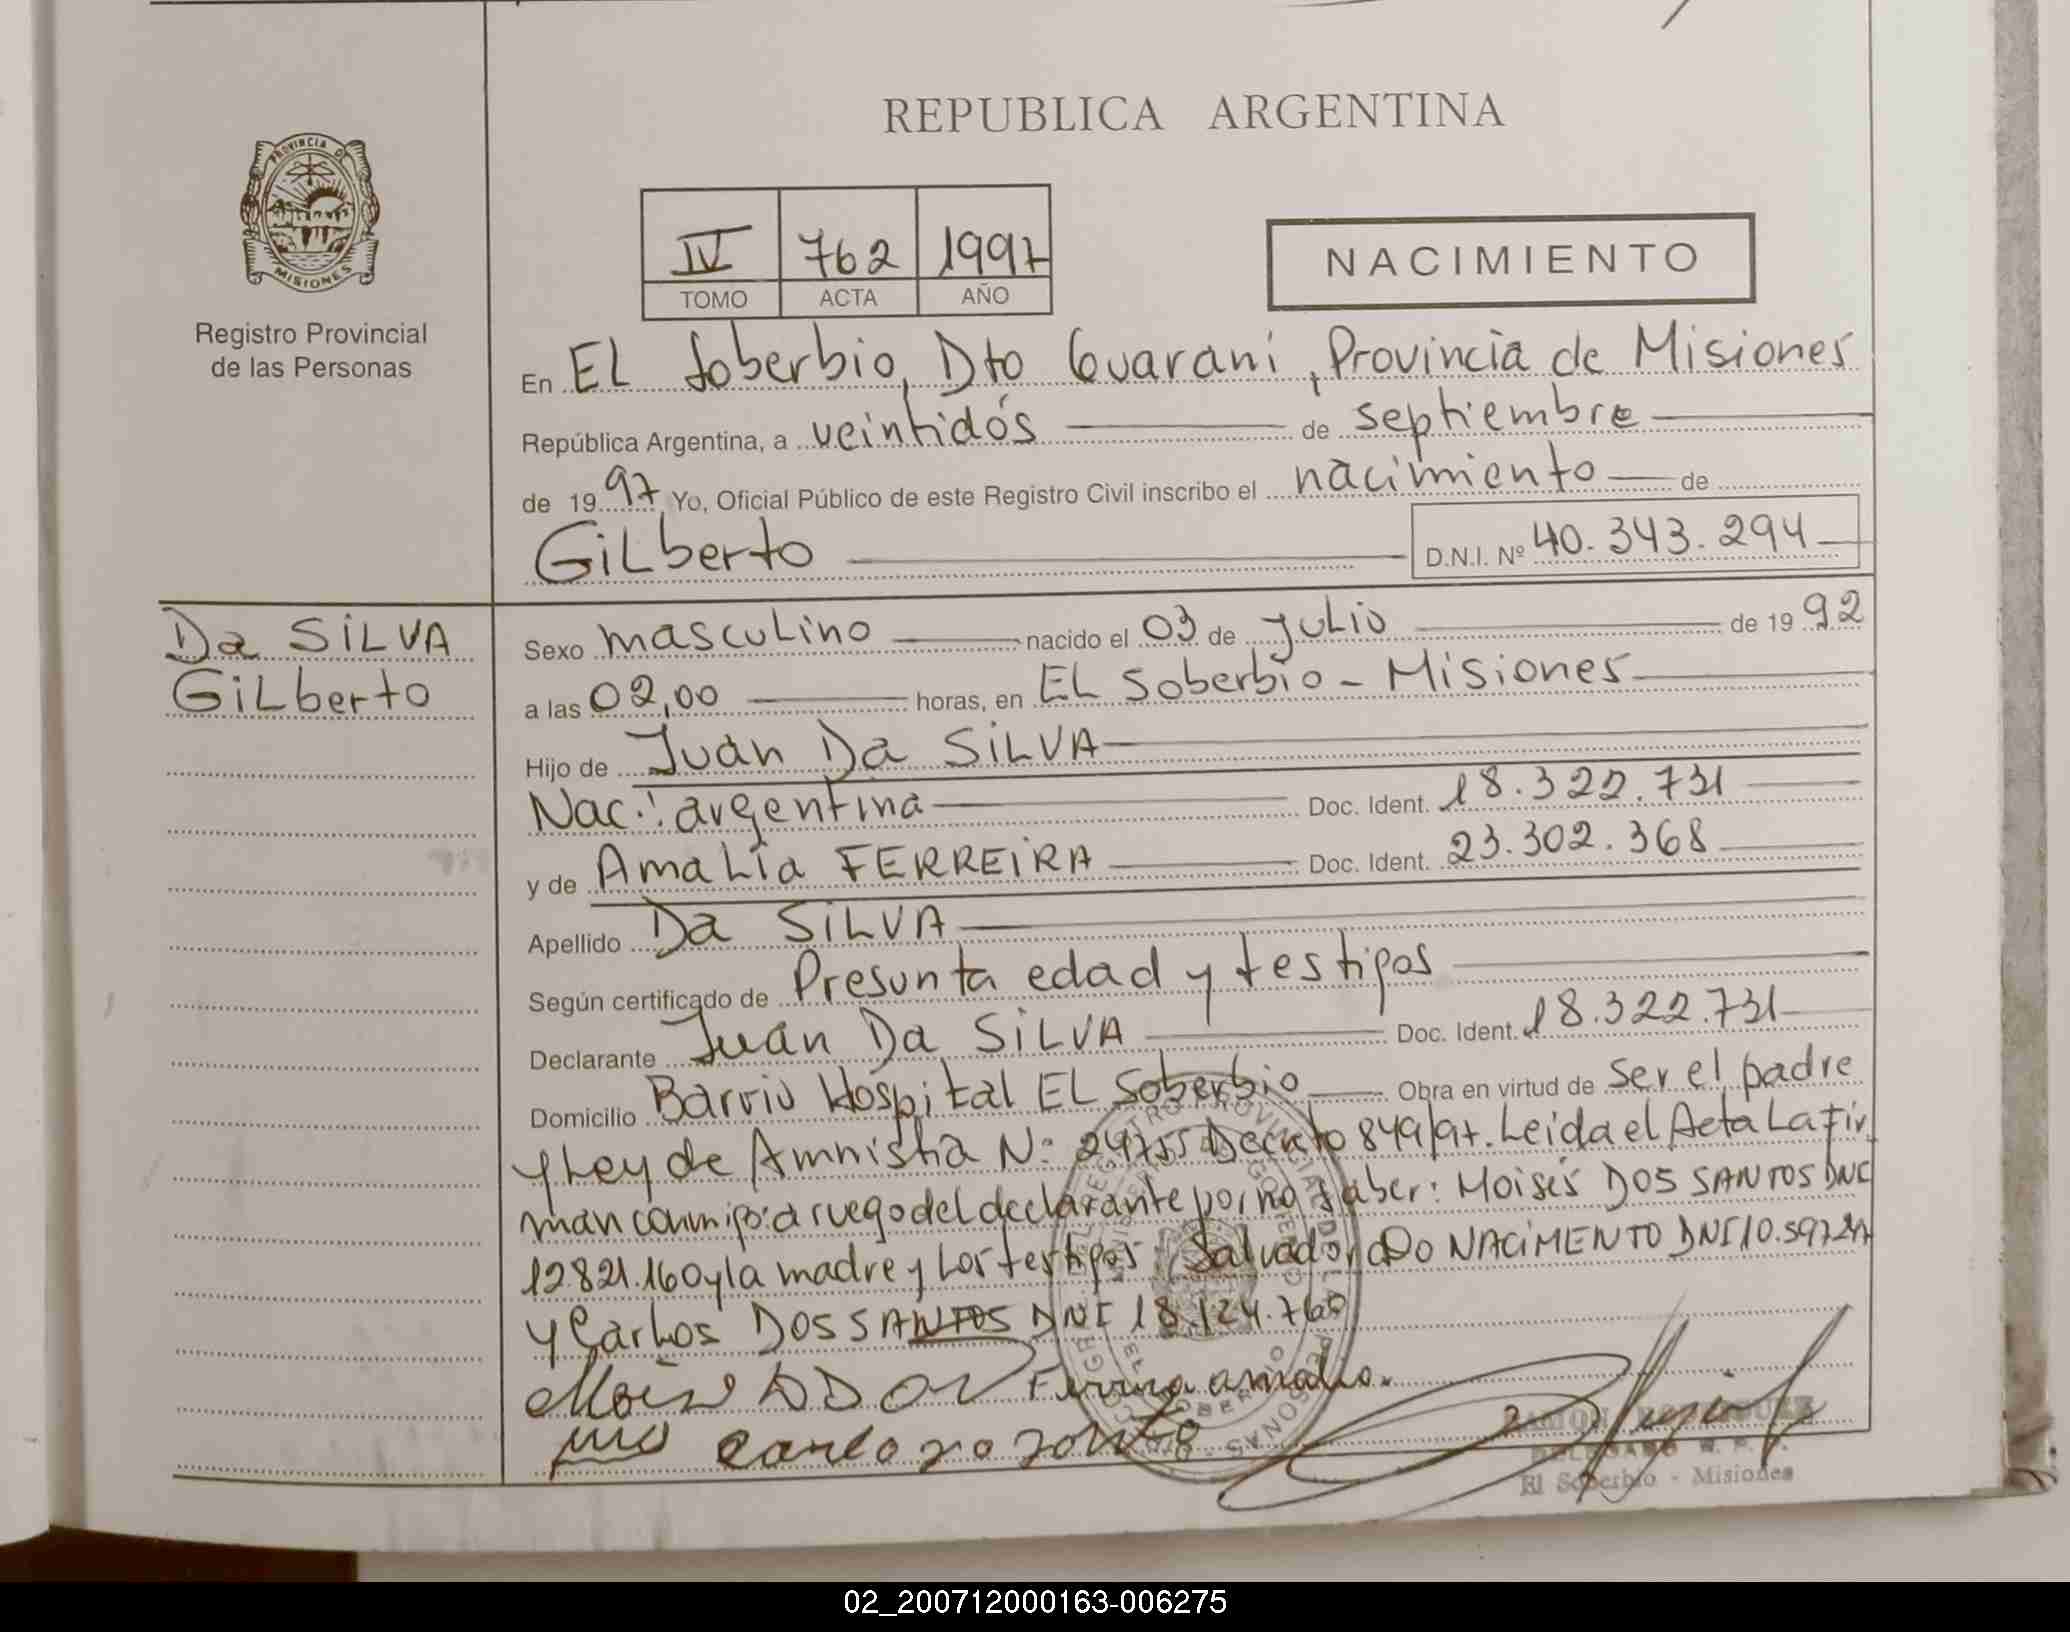 REPUBLICA ARGENTINA
PROVINCIA DE
MISIONES
Registro Provincial
de las Personas
IV 762 1997
TOMO ACTA AÑO
NACIMIENTO
En EL Soberbio, Dto Guarani, Provincia de Misiones
República Argentina, a veintidós de septiembre
de 1997 Yo, Oficial Público de este Registro Civil inscribo el nacimiento de
Gilberto D.N.I. Nº 40.343.294
Da SILVA
Gilberto
Sexo masculino nacido el 03 de Julio de 1992
a las 02,00 horas, en EL Soberbio - Misiones
Hijo de Juan Da SILVA
Nac: argentina Doc. Ident. 18.322.731
y de Amalia FERREIRA Doc. Ident. 23.302.368
Apellido Da SILVA
Según certificado de Presunta edad y testigos
Declarante Juan Da SILVA Doc. Ident. 18.322.731
Domicilio Barrio Hospital EL Soberbio Obra en virtud de Ser el padre
y Ley de Amnistia N: 24755 Decreto 849/97. Leida el Acta La fir
man conmigo: a ruego del declarante por no saber: Moisés DOS SANTOS DNI
12.821.160 y la madre y Los testigos: Salvador Do NACIMENTO DNI 10.597.
y Carlos DOS SANTOS DNI 18.124.760
Ferreira amalia.
El Soberbio - Misiones
02_200712000163-006275